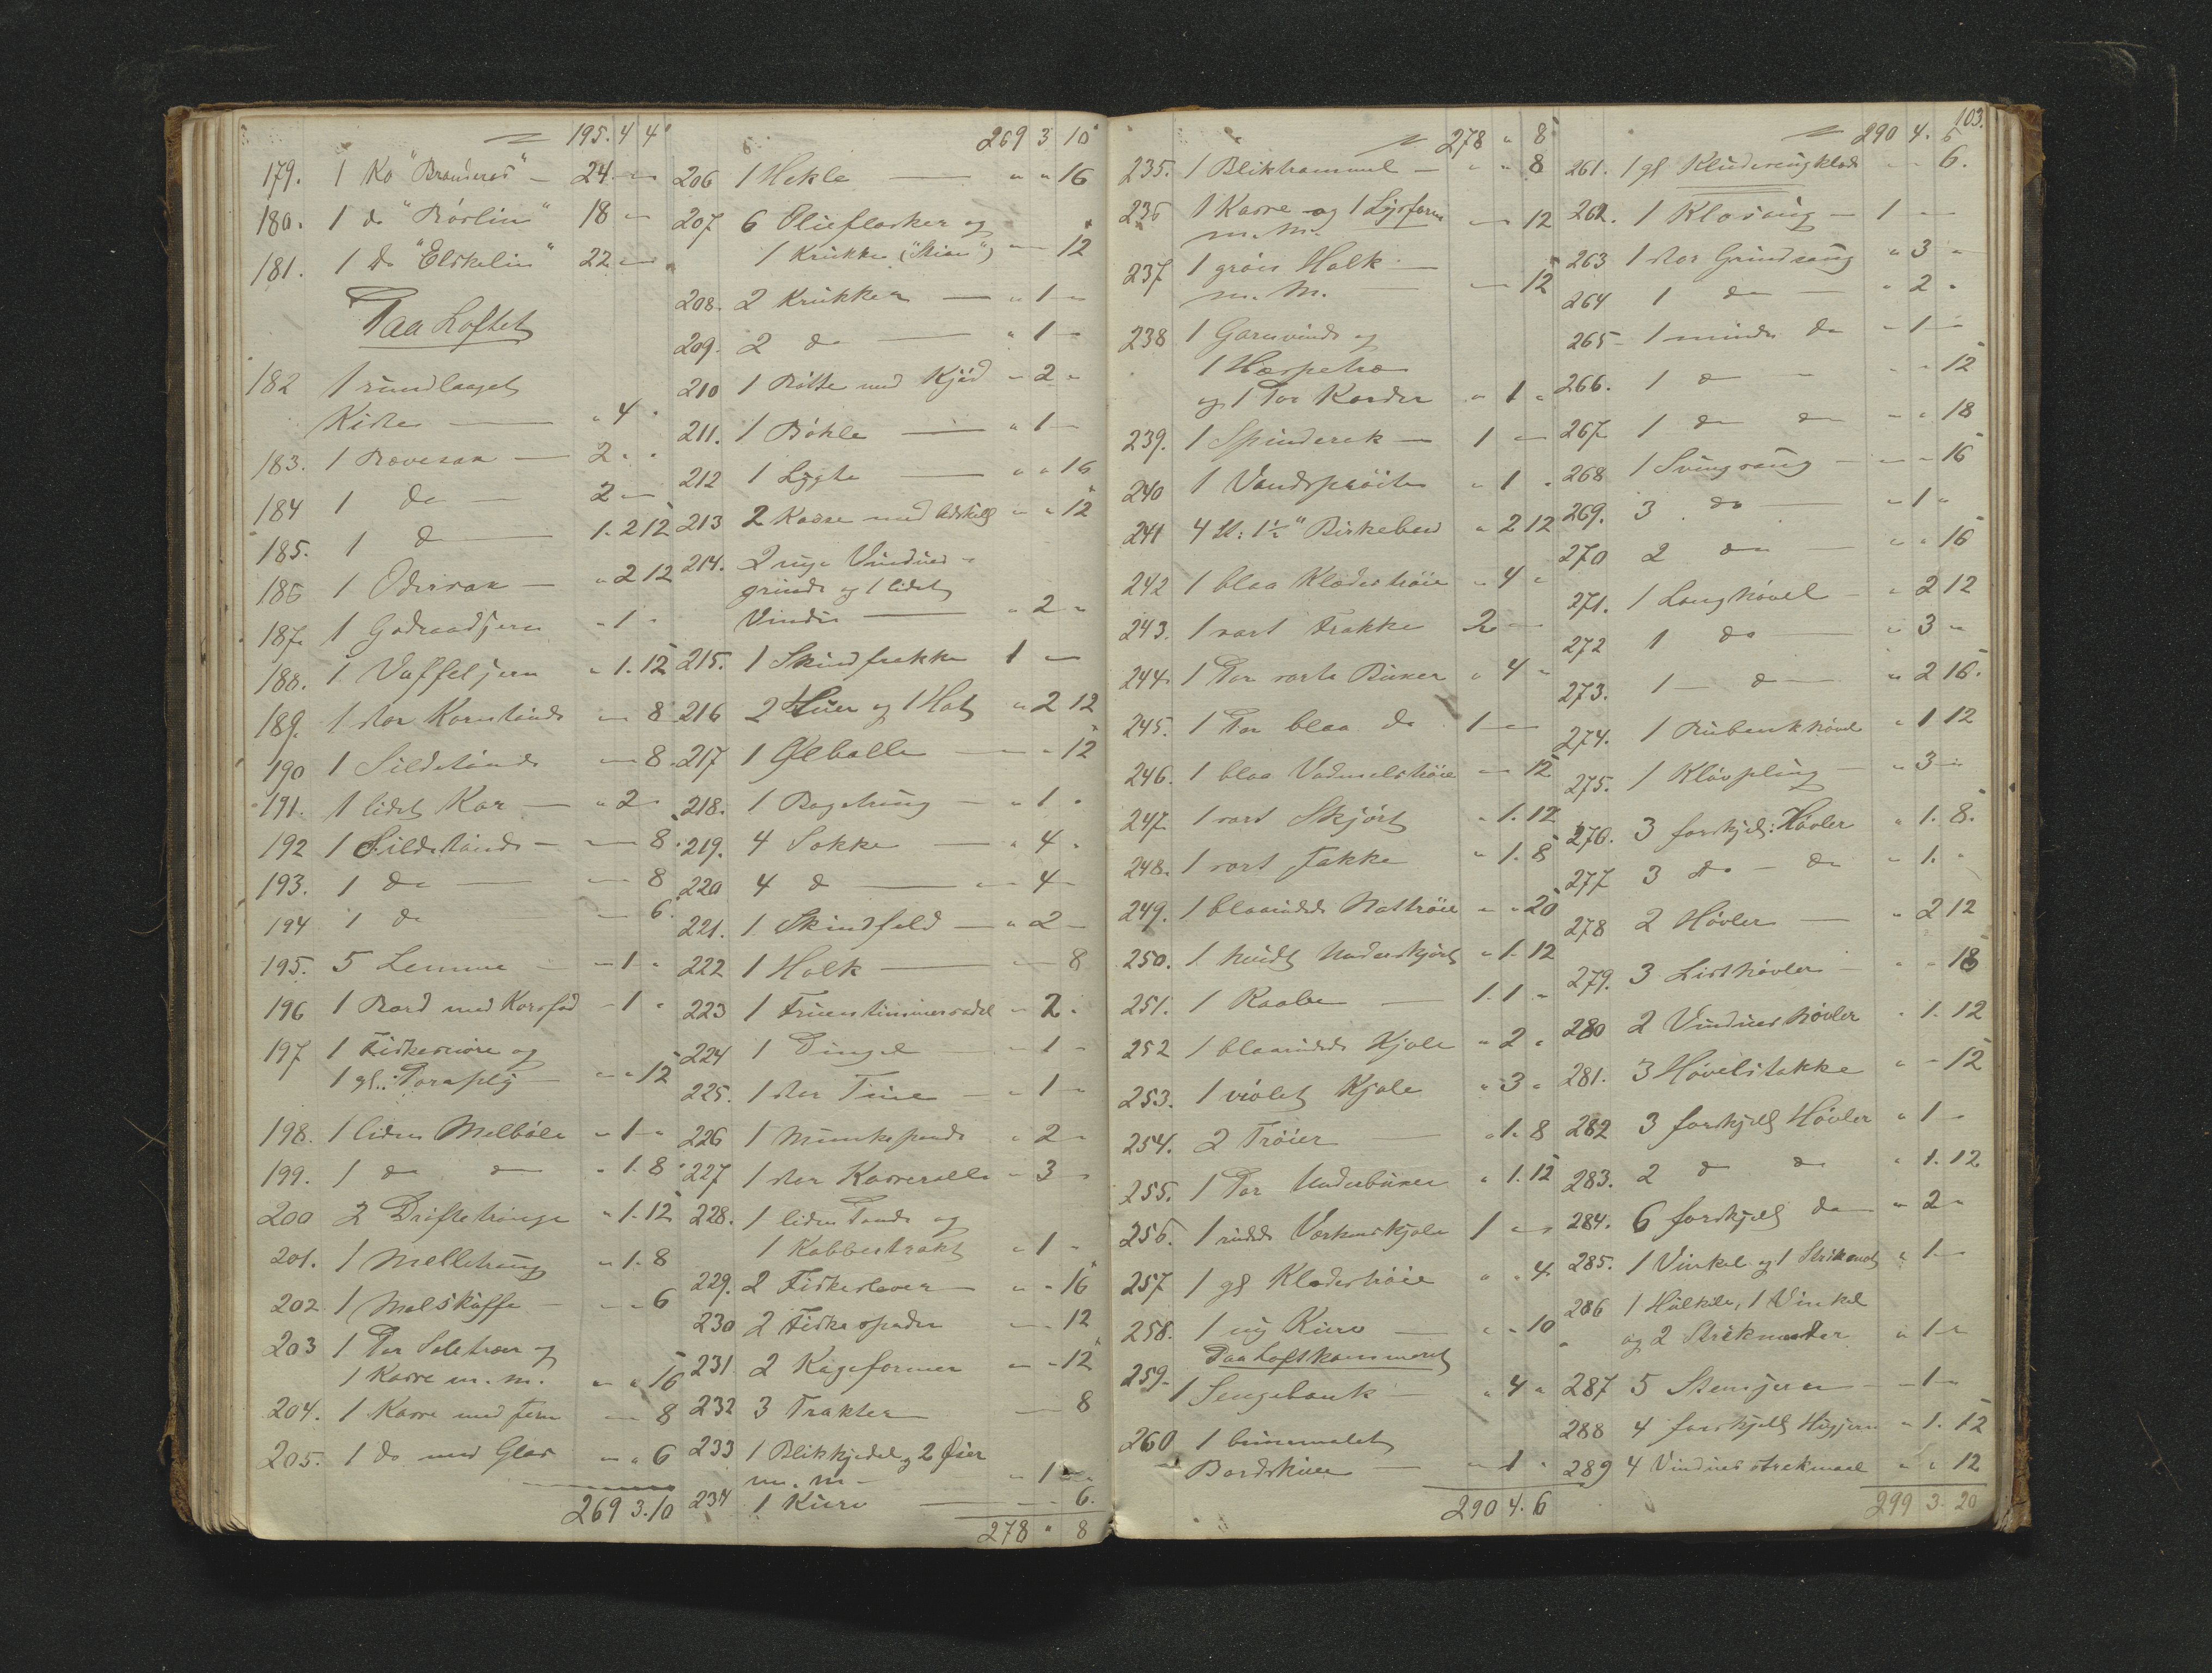 195. 4 4
179. 1 Ko "Branderos" — 24 " "
180. 1 do "Róslin" 18 " "
181. 1 do "Elskelin" 22 " "
Paa Loftet
182 1 rundlaaget
Kiste — " 4 "
183. 1 Rævesax — 2 " "
184 1 do — 2 " "
185. 1 do — 1. 2 12
186 1 Odersax — " 2 12
187. 1 Godraadjern " 1 "
188. 1 Vaffeljern " 1. 12
189. 1 stor Korntønde " " 8
190 1 Sildetønde " " 8
191. 1 lidet Kar — " 2 "
192 1 Sildetønde — " " 8
193. 1 do — " " 8
194 1 do " " 6
195. 5 Lemme — " 1 "
196 1 Bord med Korsfod " 1 "
197 1 Fiskesnøre og
1 gl: Toraplig — " " 12
198. 1 liden Melbøle " 1 "
199. 1 do do " 1. 8
200 2 Drøftetrouge " 1. 12
201. 1 Melletroug " 1. 8
202 1 Malskuffe — " " 6
203 1 Par Soletræer og
1 Kasse m. m. " " 16
204. 1 Kasse med Jern " " 8
205. 1 do med Glas " " 6
269 3. 10
269 3 10
206 1 Hekle — " " 16
207 6 Olieflasker og
1 Krukke ("Stian") " " 12
208. 2 Krukker — " 1 "
209. 2 do — " 1 "
210 1 Bøtte med Kjød " 2 "
211. 1 Bøkle — " 1 "
212 1 Lygte — " " 16
213 2 Kasse med Adskill " " 12
214. 2 nye Vindues-
grinde og 1 lidet
Vindu — " 2 "
215. 1 Skindfrakke 1 " "
216 2 Huer og 1 Hat " 2 12
217 1 Ølballe — " " 12
218. 1 Bagetrug — " 1 "
219. 4 Sække — " 4 "
220 4 do — " 4 "
221. 1 Skindfeld — " 2 "
222 1 Holk — " " 8
223 1 Fruentimmersadel " 2 "
224 1 Dingel — " 1 "
225. 1 stor Tine — " 1 "
226 1 Munkepande " 2 "
227 1 stor Kasserolle " 3 "
228. 1 liden Pande og
1 Kobbertrakt " 1 "
229. 2 Fiskeslever — " " 16
230 2 Fiskespader " " 12
231. 2 Kageformer " " 12
232 3 Trakter — " " 8
233 1 Blikkjedel og 2 Øser
m. m — " 1 "
234 1 Kurv — " " 6.
278 " 8
278 " 8
235. 1 Bliktrommel — " " 8
236 1 Kasse og 1 Lysform
m. m. " " 12
237 1 grøn Holk —
m. m. — " " 12
238 1 Garnvinde og
1 Hærpetræ
og 1 Par Karder " 1 "
239. 1 Spinderok — 1 " "
240 1 Vandsprøite " 1 "
241 4 St: 1½" Birkebord " 2 12
242 1 blaa Klædestrøie " 4 "
243. 1 sort Frakke 2 " "
244. 1 Par sorte Buxer " 4 "
245. 1 Par blaa do 1 " "
246. 1 blaa Vadmelstrøie " " 12
247. 1 sort Skjørt " 1. 12
248. 1 sort Jakke " 1. 8
249. 1 blaarudet Nattrøie " " 20
250. 1 hvidt Underskjørt " 1. 12
251. 1 Kaabe — 1. 1 "
252 1 blaarudet Kjole " 2 "
253. 1 violet Kjole " 3 "
254. 2 Trøier — " 1. 8
255. 1 Par Underbuxer " 1. 12
256. 1 rudet Værkenskjole 1 " "
257 1 gl Klædestrøie " " 4
258. 1 ny Kurv — " " 10
Paa Loftskammeret
259. 1 Sengebænk — " 4 "
260 1 brunmalet
Bordskive — " 1 "
290 4. 6
103.
290 4. 6
261. 1 gl Kludesengklæde " " 6.
262. 1 Klosaug — 1 " "
263 1 stor Grindsaug " 3 "
264 1 do — " 2 "
265 1 mindre do " 1 "
266. 1 do " " " 12
267 1 do do " " 18
268 1 Svingsaug — " " 16
269. 3 do — " 1 "
270 2 do — " " 16
271. 1 Langhøvel — " 2 12
272 1 do — " 3 "
273. 1 — do — " 2 16.
274. 1 Rubankhøvel " 1 12
275. 1 Kløvpløug — " 3 "
276. 3 forskjel: Høvler " 1. 8.
277 3 do — do " 1. "
278 2 Høvler — " 2 12
279. 3 Listhøvler — " " 18
280 2 Vindueshøvler " 1. 12
281. 3 Høvelstokke " " 12
282 3 forskjell Høvler " 1 "
283. 2 do do " 1. 12
284. 6 forskjell do " 2 "
285. 1 Vinkel og 1 Strikmot " 1 "
286 1 Hulkile, 1 Vinkel
og 2 Strikmotter " 1 "
287 5 Stemjern — " 1 "
288 4 forskjell Hugjern " 1. 12
289 4 Vinduesstrekmaal " " 12
299 3. 20